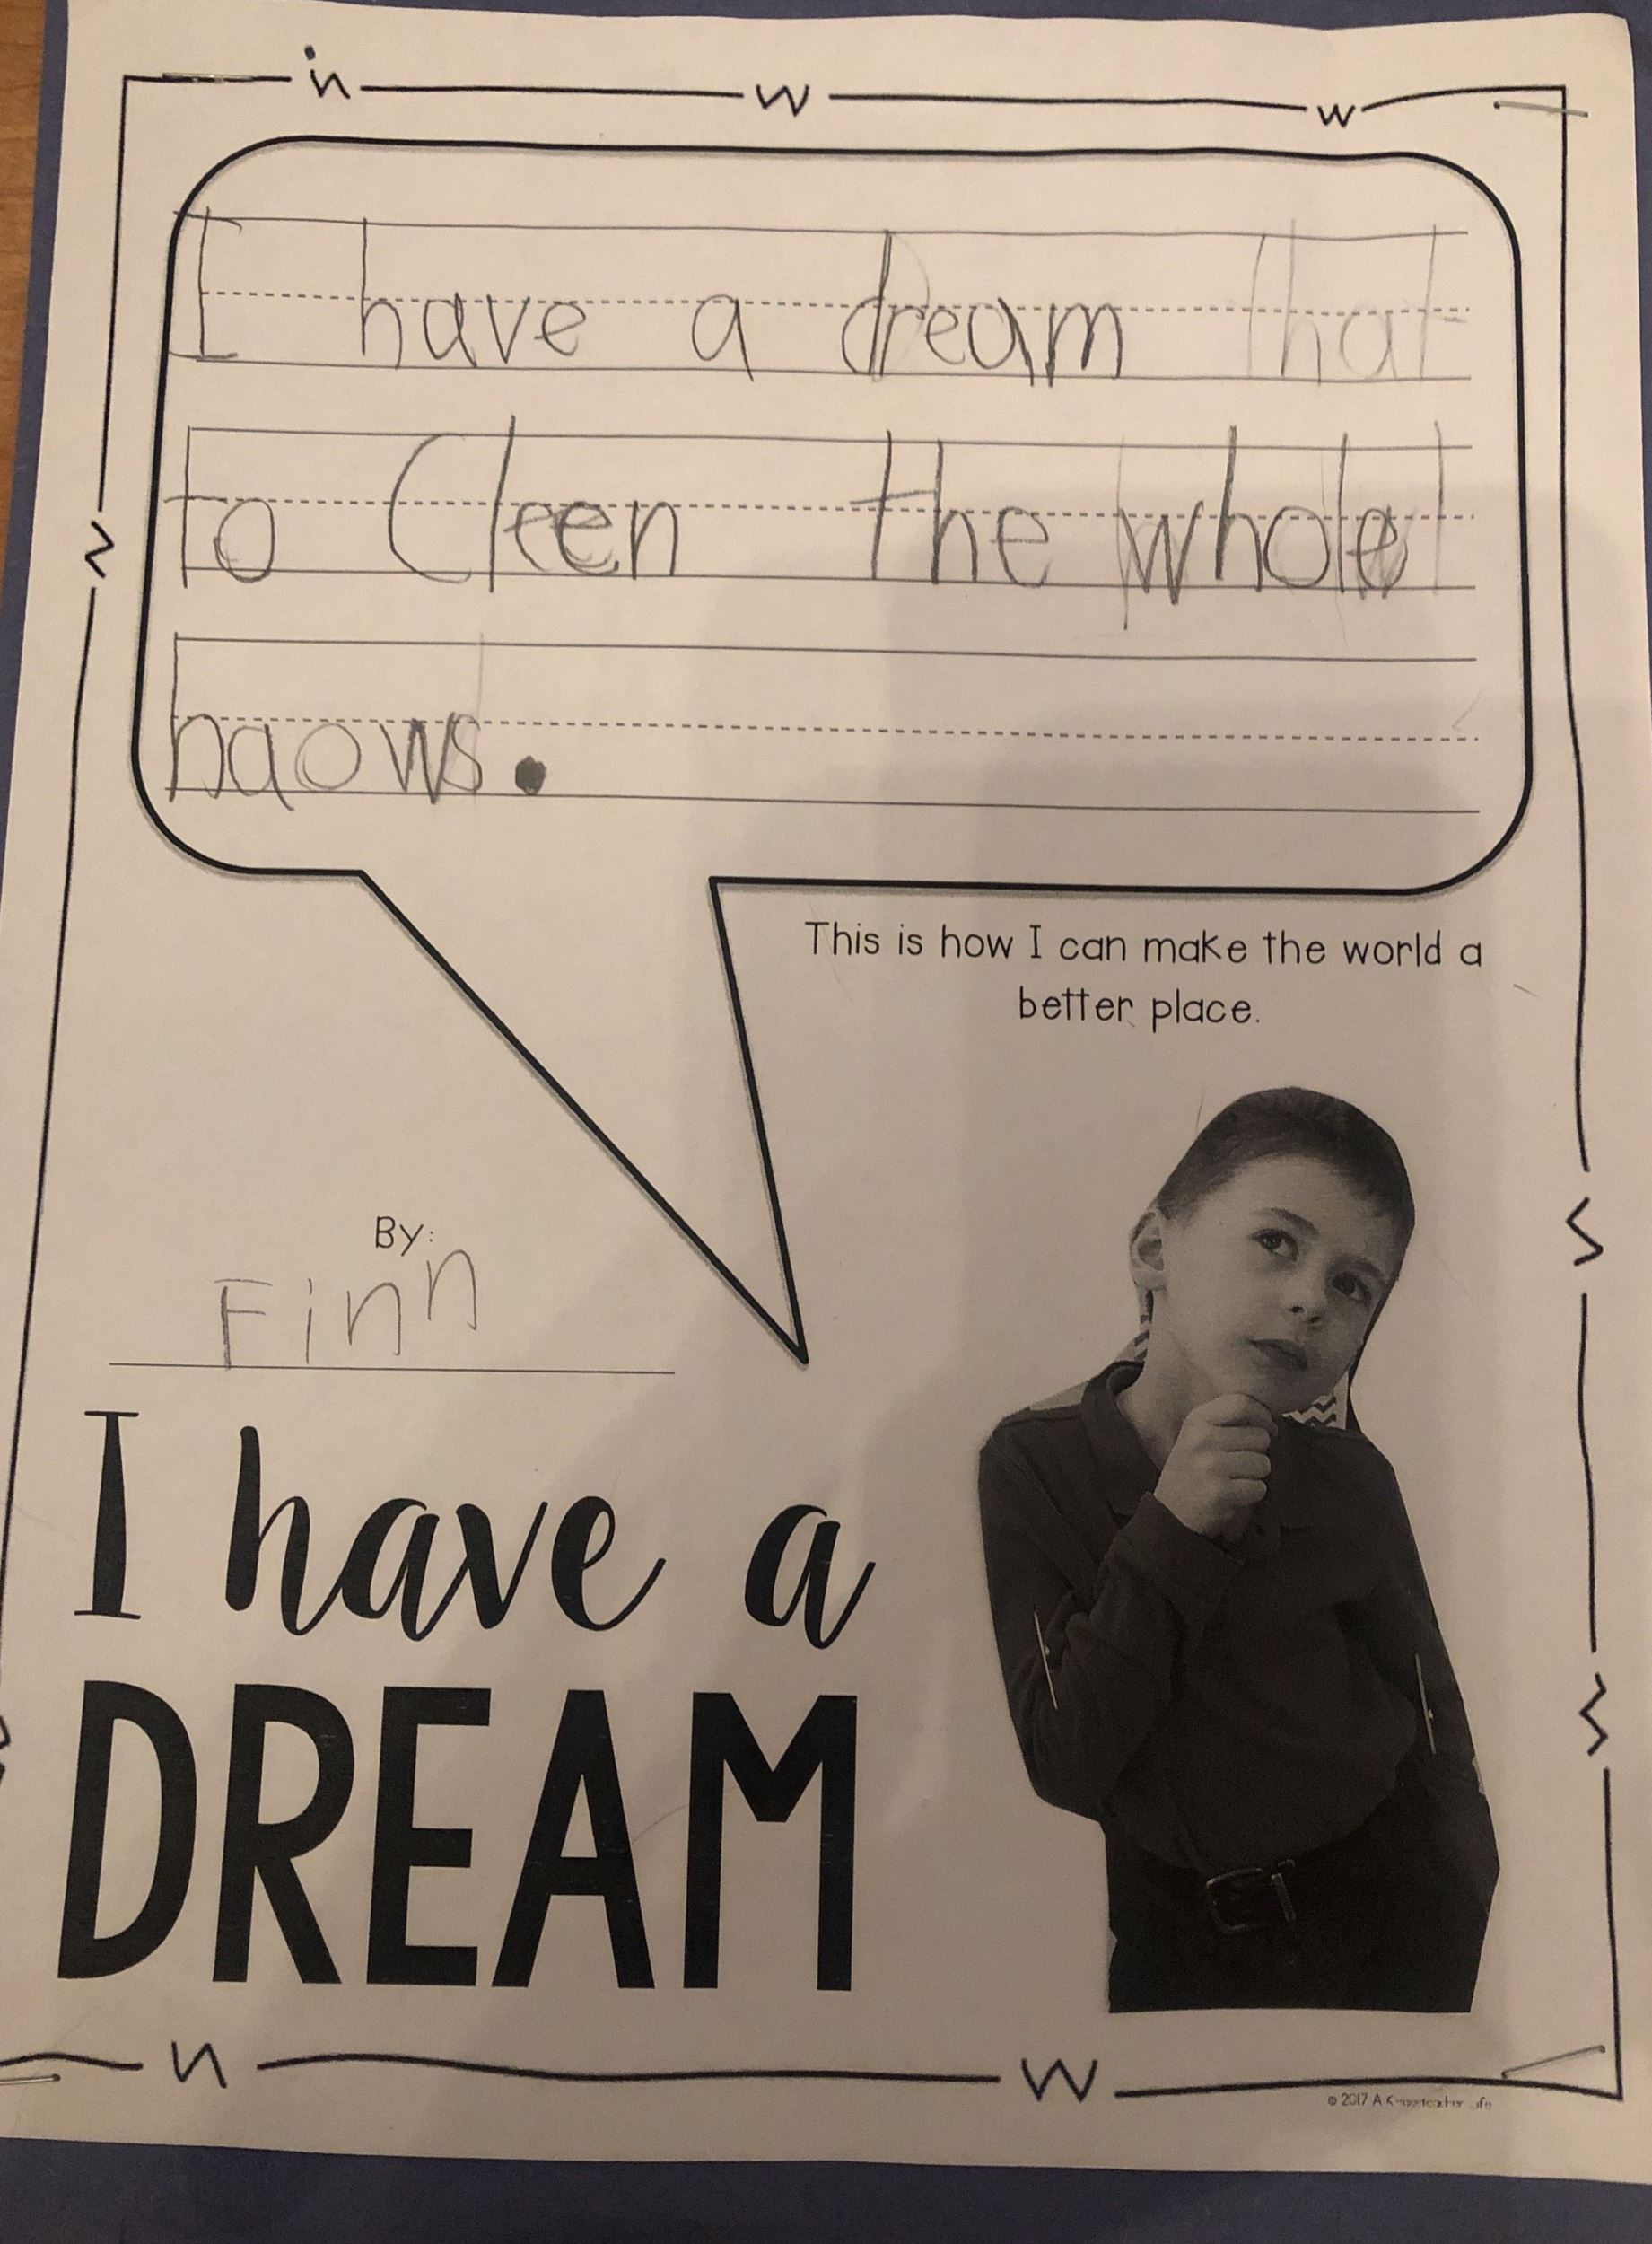 I have a dream that
to Cleen the whole
haows.
This is how I can make the world a
better place.
By:
Finn
I have a
DREAM
© 2017 A Kinderteacher Life